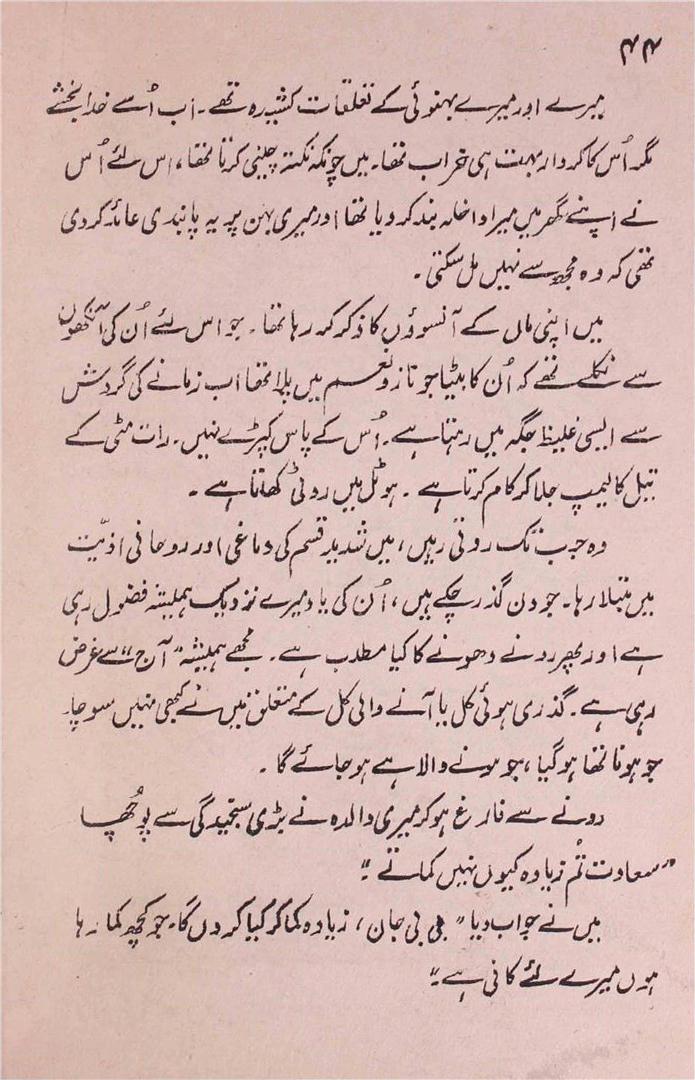 ۴۴
میرے اور میرے بہنوئی کے تعلقات کشیدہ تھے۔ اب اُسے خدا بخشے
مگر اُس کا کردار بہت ہی خراب تھا۔ میں چونکہ نکتہ چینی کرتا تھا، اس لئے اُس
نے اپنے گھر میں میرا داخلہ بند کر دیا تھا اور میری بہن پر یہ پابندی عائد کر دی
تھی کہ وہ مجھ سے نہیں مل سکتی۔
میں اپنی ماں کے آنسوؤں کا ذکر کر رہا تھا۔ جو اس لئے اُن کی آنکھوں
سے نکلے تھے کہ اُن کا بیٹا جو ناز و نعم میں پلا تھا اب زمانے کی گردش
سے ایسی غلیظ جگہ میں رہتا ہے۔ اُس کے پاس کپڑے نہیں۔ رات مٹی کے
تیل کا لیمپ جلا کر کام کرتا ہے۔ ہوٹل میں روٹی کھاتا ہے۔
وہ جب تک روتی رہیں، میں شدید قسم کی دماغی اور روحانی اذیّت
میں مبتلا رہا۔ جو دن گذر چکے ہیں، اُن کی یاد میرے نزدیک ہمیشہ فضول رہی
ہے اور پھر رونے دھونے کا کیا مطلب ہے۔ مجھے ہمیشہ "آج" سے غرض
رہی ہے۔ گذری ہوئی کل یا آنے والی کل کے متعلق میں نے کبھی نہیں سوچا۔
جو ہونا تھا ہو گیا، جو ہونے والا ہے ہو جائے گا۔
رونے سے فارغ ہو کر میری والدہ نے بڑی سنجیدگی سے پُوچھا
"سعادت تُم زیادہ کیوں نہیں کماتے"
میں نے جواب دیا "بی بی جان، زیادہ کما کر کیا کروں گا۔ جو کچھ کما رہا
ہوں میرے لئے کافی ہے"